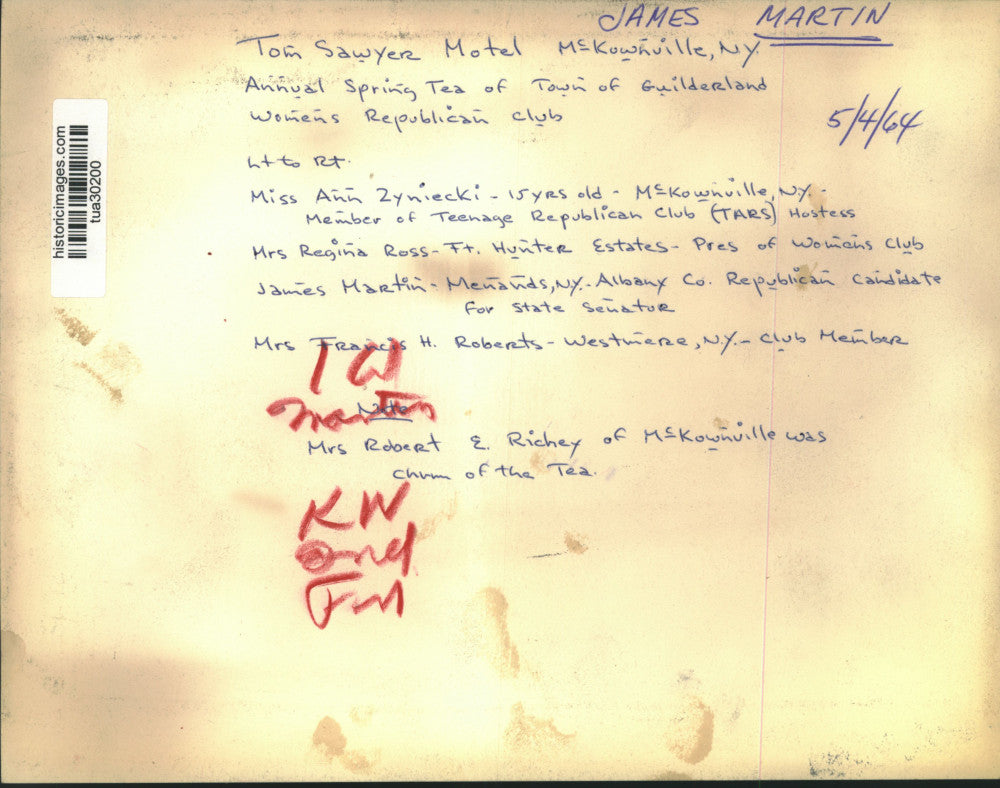 JAMES MARTIN
Tom Sawyer Motel McKownville, NY
Annual Spring Tea of Town of Guilderland
Womens Republican Club
5/4/64
Lt to Rt.
Miss Ann Zyniecki - 15 yrs old - McKownville, N.Y. -
Member of Teenage Republican Club (TARS) Hostess
Mrs Regina Ross - Ft. Hunter Estates - Pres of Womens Club
James Martin - Menands, N.Y. - Albany Co. Republican Candidate
for State Senator
Mrs Francis H. Roberts - Westmere, N.Y. - Club Member
1 W
Martin
Note
Mrs Robert E. Richey of McKownville was
Chrm of the Tea.
KW
and
historicimages.com
tua30200